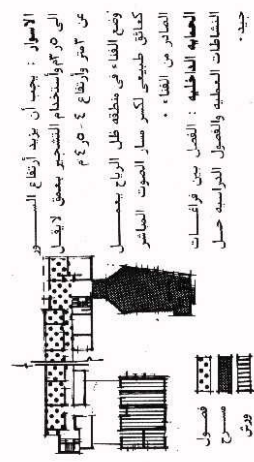 الاسوار : يجب أن يزيد أرتفاع الســــور
الى ٣٫٥م وأستخدام التشجير بعمق لايقــل
عن ٣متر وارتفاع ٤ - ٤٫٥ م
وضع الفناء فى منطقه ظل الرياح يعمـــل
كعائق طبيعى لكسر مسار الصوت المباشر
الصادر من الفناء ٠
الحمايه الداخليه : الفصل بين فراغـــات
النشاطات العمليه والفصول الدراسيه حـــل
جيد ٠
فصول
مسرح
ورش